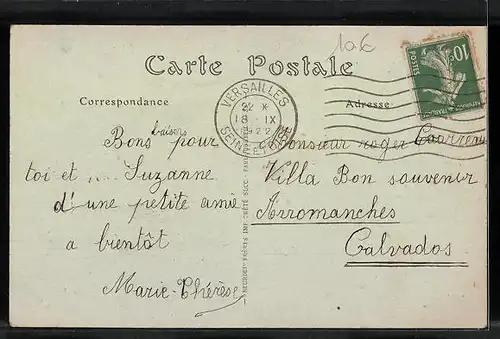 10€
Carte Postale
VERSAILLES
22 X
18 IX
22
SEINE-ET-OISE
10c
POSTES
Correspondance
Adresse
Bons baisers pour
toi et Suzanne
d'une petite amie
a bientôt
Marie-Thérèse
Monsieur roger
Villa Bon souvenir
Arromanches
Calvados